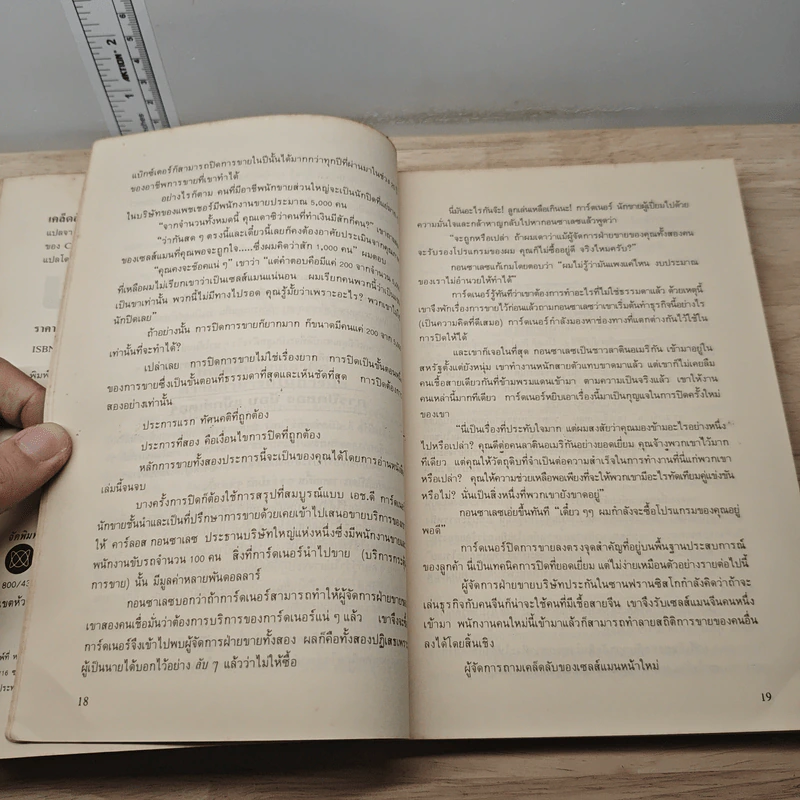 2
1
เคล็ดลั
แปลจา
ของ C
แปลโด
ราคา
ISBN
พิมพ์
จัดพิมพ์
800/43
เขตห้ว
แบ๊กซ์เตอร์ก็สามารถปิดการขายในปีนั้นได้มากกว่าทุกปีที่ผ่านมาในช่วง
ของอาชีพการขายที่เขาทำได้
อย่างไรก็ตาม คนที่มีอาชีพนักขายส่วนใหญ่จะเป็นนักปิดที่
ในบริษัทของแพชเชอร์มีพนักงานขายประมาณ 5,000 คน
"จากจำนวนทั้งหมดนี้ คุณเดาซิว่าคนที่ทำเงินมีสักกี่คน?"
"ว่ากันสด ๆ ตรงนี้และเดี๋ยวนี้เลยก็คงต้องอาศัยประเมินจาก
ของเซลส์แมนที่คุณพอจะถูกใจ.....ซึ่งผมคิดว่าสัก 1,000 คน" ผมตอบ
"คุณคงจะช้อคแน่ ๆ" เขาว่า "แต่คำตอบคือมีแค่ 200 จากจำนวน
ที่เหลือผมไม่เรียกเขาว่าเป็นเซลส์แมนแน่นอน ผมเรียกคนพวกนี้ว่า
เป็นขาเท่านั้น พวกนี้ไม่มีทางไปรอด คุณรู้มั้ยว่าเพราะอะไร? พวกเขา
นักปิดเลย"
ถ้าอย่างนั้น การปิดการขายก็ยากมาก ก็ขนาดมีคนแค่ 200 จาก
เท่านั้นที่จะทำได้?
เปล่าเลย การปิดการขายไม่ใช่เรื่องยาก การปิดเป็นขั้นตอน
ของการขายซึ่งเป็นขั้นตอนที่ธรรมดาที่สุดและเห็นชัดที่สุด การปิดต้อง
สองอย่างเท่านั้น
ประการแรก ทัศนคติที่ถูกต้อง
ประการที่สอง คือเงื่อนไขการปิดที่ถูกต้อง
หลักการขายทั้งสองประการนี้จะเป็นของคุณได้โดยการอ่านหนังสือ
เล่มนี้จนจบ
บางครั้งการปิดก็ต้องใช้การสรุปที่สมบูรณ์แบบ เอช.ดี การ์ดเนอร์
นักขายชั้นนำและเป็นที่ปรึกษาการขายด้วยเคยเข้าไปเสนอขายบริการของ
ให้ คาร์ลอส กอนซาเลซ ประธานบริษัทใหญ่แห่งหนึ่งซึ่งมีพนักงานขาย
พนักงานขับรถจำนวน 100 คน สิ่งที่การ์ดเนอร์นำไปขาย (บริการ
การขาย) นั้น มีมูลค่าหลายพันดอลลาร์
กอนซาเลซบอกว่าถ้าการ์ดเนอร์สามารถทำให้ผู้จัดการฝ่ายขาย
เขาสองคนเชื่อมั่นว่าต้องการบริการของการ์ดเนอร์แน่ ๆ แล้ว เขาจึงจะ
การ์ดเนอร์จึงเข้าไปพบผู้จัดการฝ่ายขายทั้งสอง ผลก็คือทั้งสองปฏิเสธเพราะ
ผู้เป็นนายได้บอกไว้อย่าง ลับ ๆ แล้วว่าไม่ให้ซื้อ
18
นี่มันอะไรกันจ๊ะ! ลูกเล่นเหลือเกินนะ! การ์ดเนอร์ นักขายผู้เปี่ยมไปด้วย
ความมั่นใจและกล้าหาญกลับไปหากอนซาเลซแล้วพูดว่า
"จะถูกหรือเปล่า ถ้าผมเดาว่าแม้ผู้จัดการฝ่ายขายของคุณทั้งสองคน
จะรับรองโปรแกรมของผม คุณก็ไม่ซื้ออยู่ดี จริงไหมครับ?"
กอนซาเลซแก้เกมโดยตอบว่า "ผมไม่รู้ว่ามันแพงแค่ไหน งบประมาณ
ของเราไม่อำนวยให้ทำได้"
การ์ดเนอร์รู้ทันทีว่าเขาต้องการทำอะไรที่ไม่ใช่ธรรมดาแล้ว ด้วยเหตุนี้
เขาจึงพักเรื่องการขายไว้ก่อนแล้วถามกอนซาเลซว่าเขาเริ่มต้นทำธุรกิจนี้อย่างไร
(เป็นความคิดที่ดีเสมอ) การ์ดเนอร์กำลังมองหาช่องทางที่แตกต่างกันไว้ใช้ใน
การปิดให้ได้
และเขาก็เจอในที่สุด กอนซาเลซเป็นชาวลาตินอเมริกัน เข้ามาอยู่ใน
สหรัฐตั้งแต่ยังหนุ่ม เขาทำงานหนักสายตัวแทบขาดมาแล้ว แต่เขาก็ไม่เคยลืม
คนเชื้อสายเดียวกันที่ข้ามพรมแดนเข้ามา ตามความเป็นจริงแล้ว เขาให้งาน
คนเหล่านี้มากทีเดียว การ์ดเนอร์หยิบเอาเรื่องนี้มาเป็นกุญแจในการปิดครั้งใหม่
ของเขา
"นี่เป็นเรื่องที่ประทับใจมาก แต่ผมสงสัยว่าคุณมองข้ามอะไรอย่างหนึ่ง
ไปหรือเปล่า? คุณดีต่อคนลาตินอเมริกันอย่างยอดเยี่ยม คุณจ้างพวกเขาไว้มาก
ทีเดียว แต่คุณให้วัตถุดิบที่จำเป็นต่อความสำเร็จในการทำงานที่นี่แก่พวกเขา
หรือเปล่า? คุณให้ความช่วยเหลือพอเพียงที่จะให้พวกเขามีอะไรทัดเทียมคู่แข่งขัน
หรือไม่? นั่นเป็นสิ่งหนึ่งที่พวกเขายังขาดอยู่"
กอนซาเลซเอ่ยขึ้นทันที "เดี๋ยว ๆๆ ผมกำลังจะซื้อโปรแกรมของคุณอยู่
พอดี"
การ์ดเนอร์ปิดการขายลงตรงจุดสำคัญที่อยู่บนพื้นฐานประสบการณ์
ของลูกค้า นี่เป็นเทคนิคการปิดที่ยอดเยี่ยม แต่ไม่ง่ายเหมือนตัวอย่างรายต่อไปนี้
ผู้จัดการฝ่ายขายบริษัทประกันในซานฟรานซิสโกกำลังคิดว่าถ้าจะ
เล่นธุรกิจกับคนจีนก็น่าจะใช้คนที่มีเชื้อสายจีน เขาจึงรับเซลส์แมนจีนคนหนึ่ง
เข้ามา พนักงานคนใหม่นี้เข้ามาแล้วก็สามารถทำลายสถิติการขายของคนอื่น
ลงได้โดยสิ้นเชิง
ผู้จัดการถามเคล็ดลับของเซลส์แมนหน้าใหม่
19